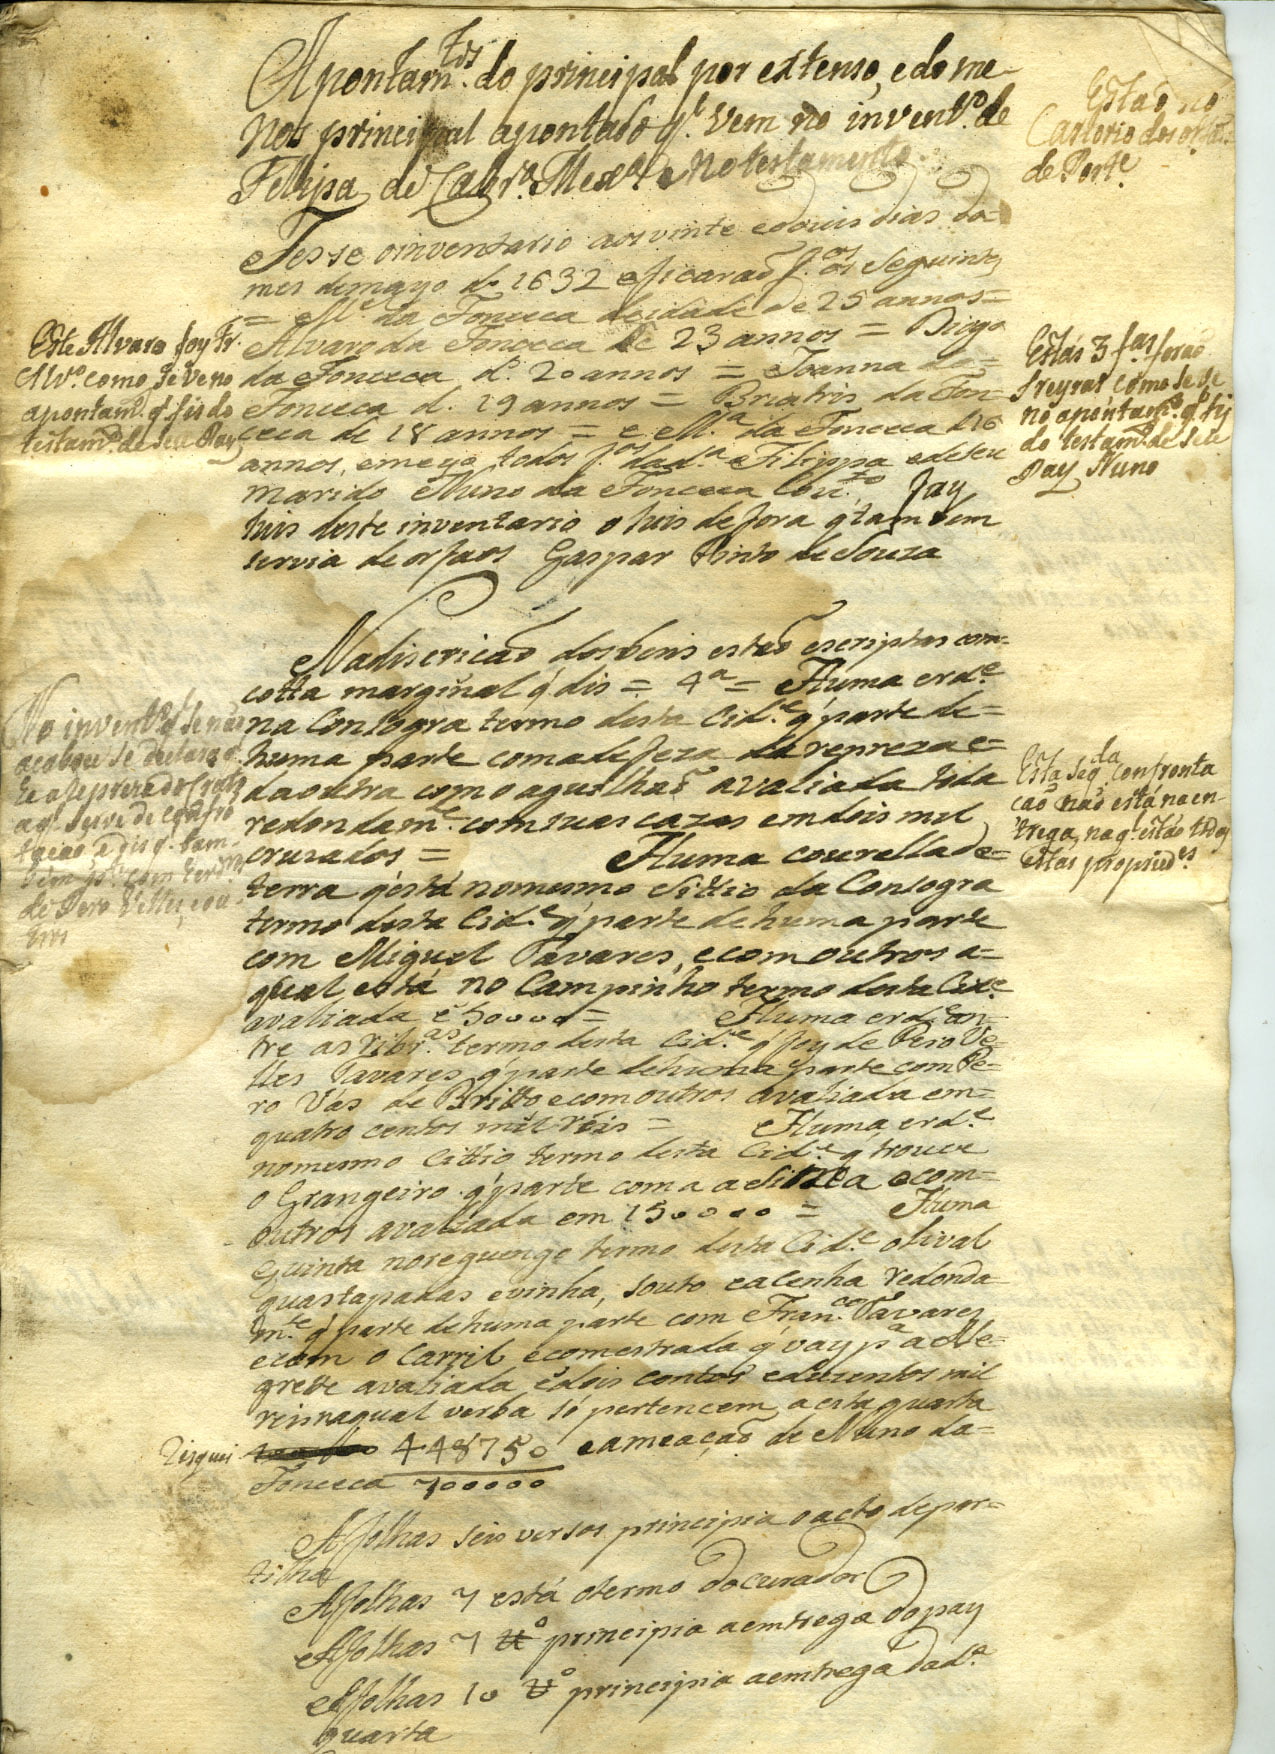 Apontam.tos do principal por extenso, e do me-
nos principal apontado q. vem no invent.ro de
Felipa de Cabr.a Mex.a e no testamento
Estaõ no
Cartorio dos orfaõs
de Port.e
Fesse o inventario aos vinte e douis dias do
mes de mayo de 1632 e ficaraõ f.os os seguintes
= M.el da Fonceca de idade de 25 annos =
Alvaro da Fonceca de 23 annos = Diogo
da Fonceca d. 20 annos = Joanna da
Fonceca d. 19 annos = Briatris da Fon-
ceca de 18 annos = e M.a da Fonceca d 16
annos, e meyo todos f.os da d.a Filippa e de seu
marido Nuno da Fonceca Cou.to foy
luis deste inventario o luis de fora q tambem
servia de orfaos Gaspar Pinto de Souza
Este Alvaro foy Fr.
Alv.o como se ve no
apontam.to q. fis do
testam.to de seu Pay
Estas 3 f.as foraõ
freyras como se ve
no apontam.to q fis
do testam.to de seu
Pay Nuno
Na discricaõ dos bens estaõ escriptas com
cotta marginal q dis = 4a = Huma erd.e
na Consogra termo desta Cid.e q parte de
huma parte com a defeza da repreza e
da outra com o agulhaõ avaliada toda
redondam.te com suas cazas em dois mil
cruzados = Huma courella de
terra q está no mesmo sittio da Consogra
termo desta Cid.e q parte de huma parte
com Miguel Tavares, e com outros a
qual está no Campinho termo desta Cid.e
avaliada ẽ 50000 = Huma erd.e an-
tre as ribr.as termo desta Cid.e q foy de Pero Ve-
lles Tavares q parte de huma parte com Pe-
ro Vas de Britto e com outros avaliada em
quatro centos mil reis = Huma erd.e
no mesmo sittio termo desta Cid.e q trouce
o Grangeiro q parte com a e com
outros avaliada em 150000 = Huma
quinta no reguengo termo desta Cid.e olival
quastapadas e vinha, souto e acenha redonda
m.te q parte de huma parte com Fran.co Tavares
e com o Carril e com estrada q vay p.a Ale-
grete avaliada ẽ dois contos e duzentos mil
reis na qual verba só pertencem a esta quarta
448750 e a meaçaõ de Nuno da
Fonceca 700000
No invent.ro q se naõ
acabou se declara q.
Risquei
Esta seg.da confronta
caõ naõ está na en-
trega, na q.l estaõ todas
estas propried.es
A folhas seis versos principia o acto de par-
tilha
A folhas 7 está o termo do curador
A folhas 7 v.o principia a emtrega do pay
A folhas 10 v.o principia a emtrega da d.a
quarta